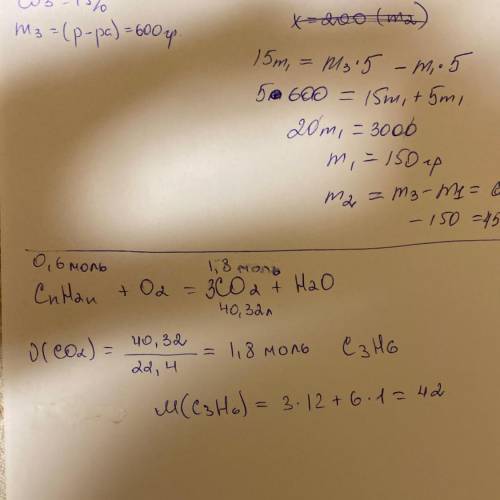 ω3 = 15%
m3 = (р-ра) = 600 гр.
x = 200 (m2)
15m1 = m3·5 - m1·5
5·600 = 15m1 + 5m1
20m1 = 3000
m1 = 150 гр
m2 = m3 - m1 =
- 150 = 45
0,6 моль 1,8 моль
CnH2n + O2 = 3CO2 + H2O
40,32л
υ(CO2) = 40,32 / 22,4 = 1,8 моль C3H6
M(C3H6) = 3·12 + 6·1 = 42